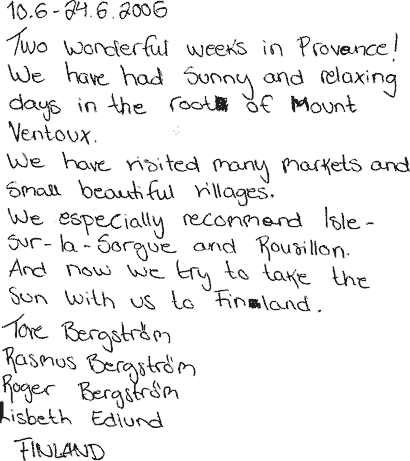 10.6-24.6.2006
Two wonderful weeks in Provence!
We have had sunny and relaxing
days in the root of Mount
Ventoux.
We have visited many markets and
small beautiful villages.
We especially recommend Isle-
sur-la-Sorgue and Rousillon.
And now we try to take the
sun with us to Finland.
Tove Bergström
Rasmus Bergström
Roger Bergström
Lisbeth Edlund
FINLAND